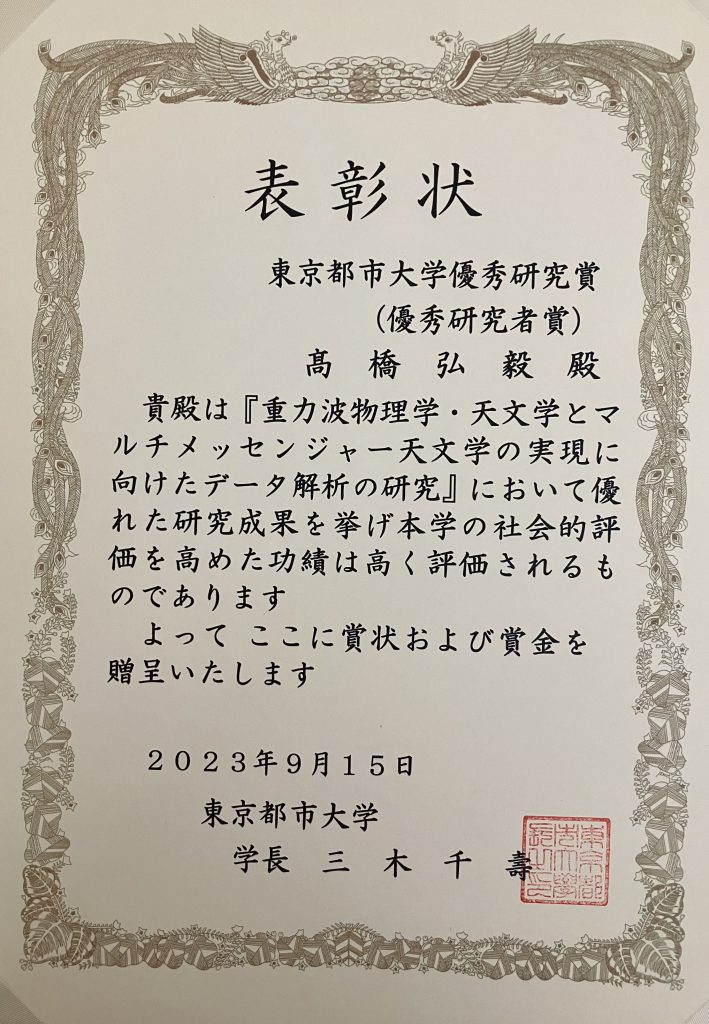 表彰状
東京都市大学優秀研究賞
（優秀研究者賞）
髙橋弘毅殿
貴殿は『重力波物理学・天文学とマ
ルチメッセンジャー天文学の実現に
向けたデータ解析の研究』において優
れた研究成果を挙げ本学の社会的評
価を高めた功績は高く評価されるも
のであります
よって ここに賞状および賞金を
贈呈いたします
２０２３年９月１５日
東京都市大学
学長 三木千壽
東京都
市大学
長之印